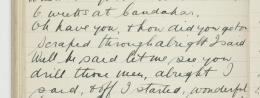 6 weeks at Candahar.
Oh have you, & how did you get on
Scraped through alright I said
Well he said let me, see you
drill those men, alright I
said, & off I started, wonderful